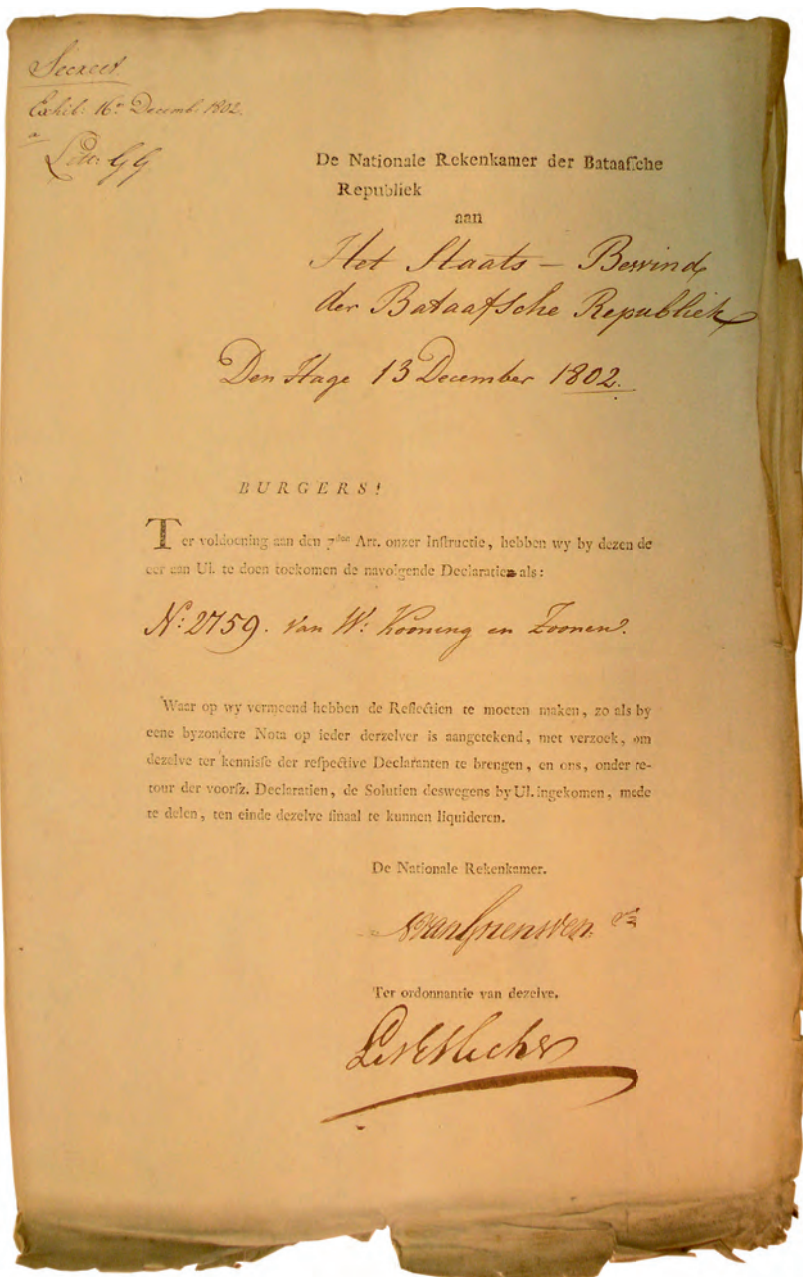 Secreet
Exhib: 16e Decemb: 1802.
a
Litt: GG
De Nationale Rekenkamer der Bataafsche
Republiek
aan
Het Staats - Bewind
der Bataafsche Republiek
Den Hage 13 December 1802.
BURGERS!
Ter voldoening aan den 7den Art. onzer Instructie, hebben wy by dezen de
eer aan Ul. te doen toekomen de navolgende Declaratie als:
N: 2759. van W: Kooning en Zoonen.
Waar op wy vermeend hebben de Reflectien te moeten maken, zo als by
eene byzondere Nota op ieder derzelver is aangetekend, met verzoek, om
dezelve ter kennisse der respective Declaranten te brengen, en ons, onder re-
tour der voorsz. Declaratien, de Solutien deswegens by Ul. ingekomen, mede
te delen, ten einde dezelve finaal te kunnen liquideren.
De Nationale Rekenkamer.
Ter ordonnantie van dezelve.